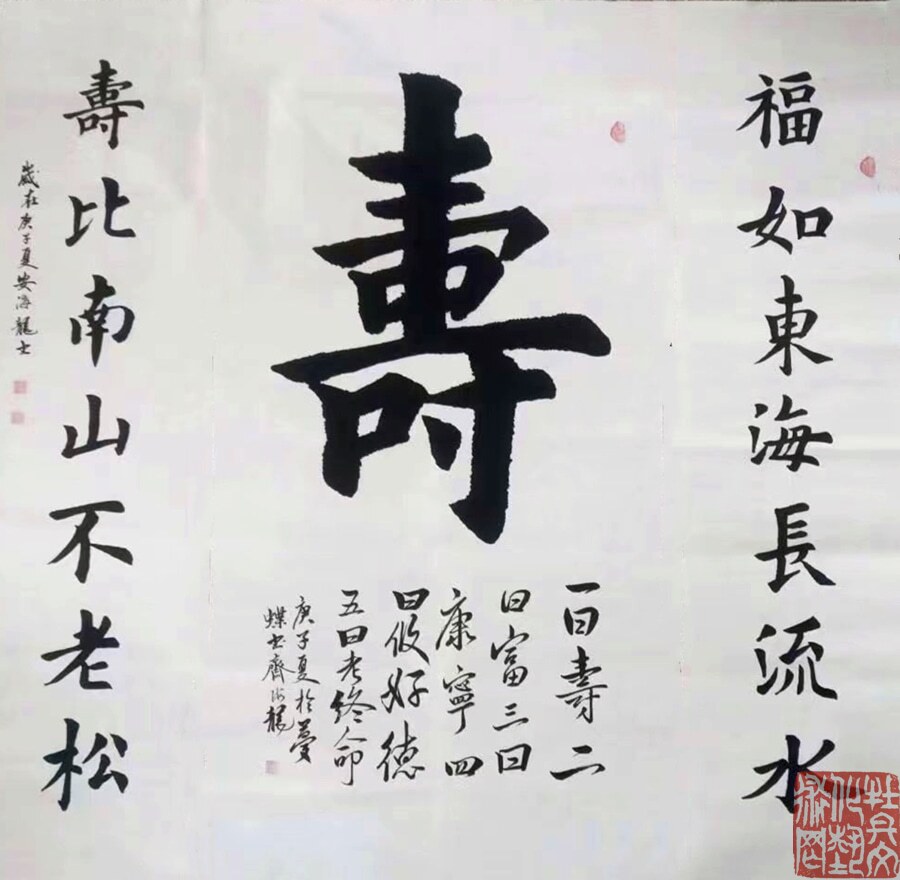 福如東海長流水
壽
一曰壽二
曰富三曰
康寧四
曰攸好德
五曰考終命
庚子夏於夢
蝶书齋海龍
壽比南山不老松
歲在庚子夏安海龍